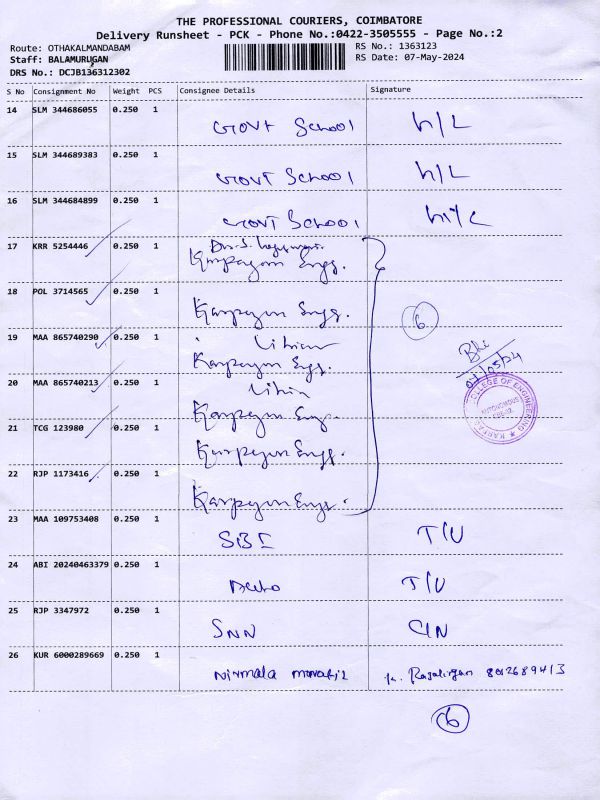 THE PROFESSIONAL COURIERS, COIMBATORE
Delivery Runsheet - PCK - Phone No.:0422-3505555 - Page No.:2
Route: OTHAKALMANDABAM
Staff: BALAMURUGAN
DRS No.: DCJB136312302
RS No.: 1363123
RS Date: 07-May-2024
S No Consignment No Weight PCS Consignee Details Signature
14 SLM 344686055 0.250 1 GOVT School h/L
15 SLM 344689383 0.250 1 GOVT School h/L
16 SLM 344684899 0.250 1 GOVT School
17 KRR 5254446 0.250 1
Karpagam Engg.
18 POL 3714565 0.250 1 Karpagam Engg.
19 MAA 865740290 0.250 1
Karpagam Engg.
20 MAA 865740213 0.250 1
Karpagam Eng.
21 TCG 123980 0.250 1 Karpagam Engg.
22 RJP 1173416 0.250 1 Karpagam Engg.
6
07/05/24
COLLEGE OF ENGINEERING
AUTONOMOUS
23 MAA 109753408 0.250 1 SBI T/U
24 ABI 20240463379 0.250 1 T/U
25 RJP 3347972 0.250 1 SNN
26 KUR 6000289669 0.250 1 Nirmala
6